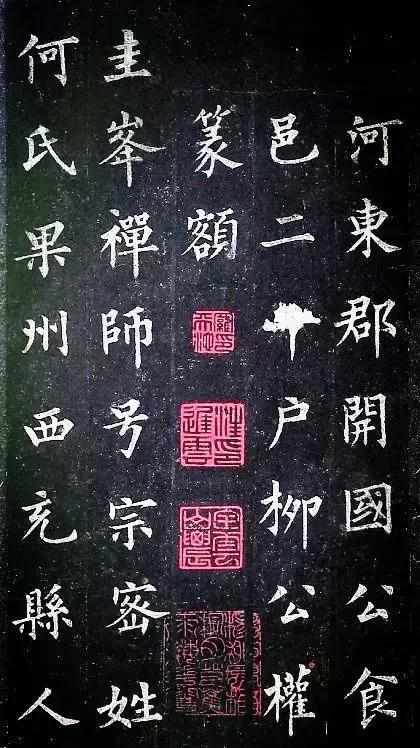 河東郡開國公食
邑二千户柳公權
篆額
圭峯禪師号宗宻姓
何氏果州西充縣人